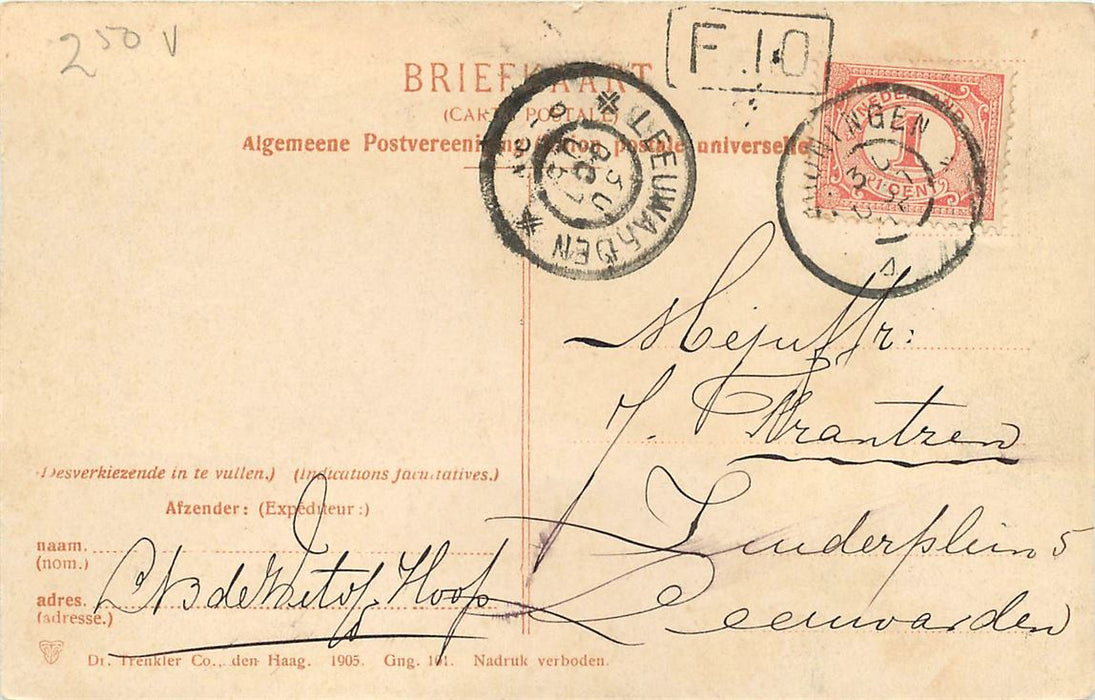 2 50 V
F.10
BRIEFKAART
(CARTE POSTALE)
Algemeene Postvereeniging Union postale universelle
NEDERLAND
1
CENT
GRONINGEN
LEEUWARDEN
Mejuffr:
J. Krantzen
Zuiderplein 5
Leeuwarden
(Desverkiezende in te vullen.) (Indications facultatives.)
Afzender: (Expéditeur:)
naam.
(nom.)
adres.
(adresse.)
Dr. Trenkler Co., den Haag. 1905. Gng. 101. Nadruk verboden.